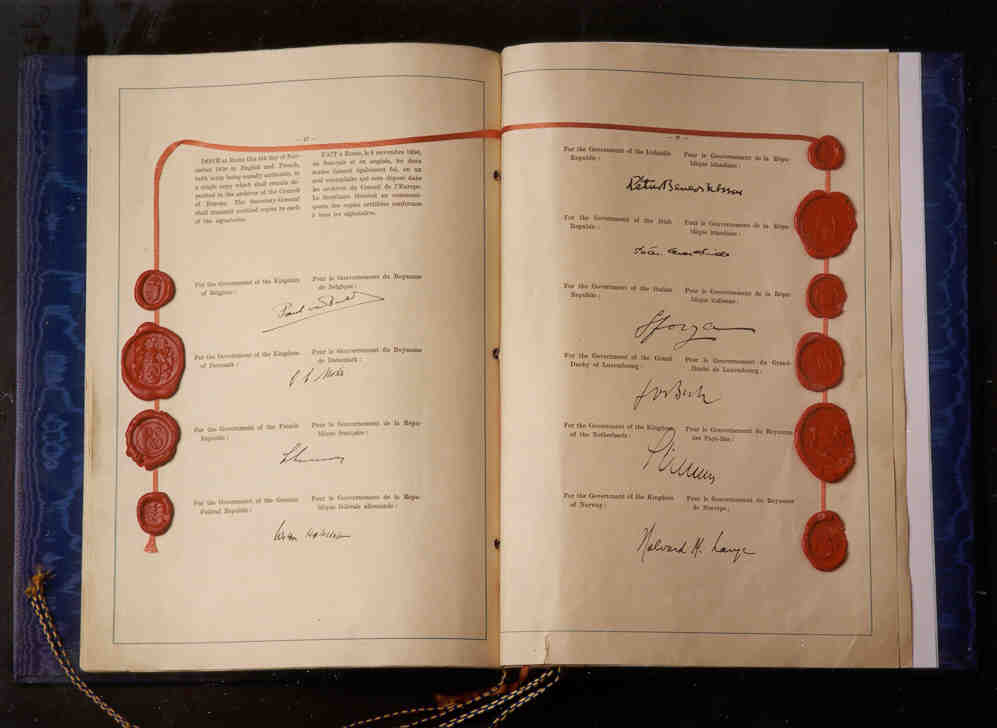 — 17 —
DONE at Rome this 4th day of Nov-
ember 1950 in English and French,
both texts being equally authentic, in
a single copy which shall remain de-
posited in the archives of the Council
of Europe. The Secretary-General
shall transmit certified copies to each
of the signatories.
FAIT à Rome, le 4 novembre 1950,
en français et en anglais, les deux
textes faisant également foi, en un
seul exemplaire qui sera déposé dans
les archives du Conseil de l'Europe.
Le Secrétaire Général en communi-
quera des copies certifiées conformes
à tous les signataires.
For the Government of the Kingdom
of Belgium:
Pour le Gouvernement du Royaume
de Belgique:
Paul van
For the Government of the Kingdom
of Denmark:
Pour le Gouvernement du Royaume
de Danemark:
For the Government of the French
Republic:
Pour le Gouvernement de la Répu-
blique française:
For the Government of the German
Federal Republic:
Pour le Gouvernement de la Répu-
blique fédérale allemande:
For the Government of the Icelandic
Republic:
Pour le Gouvernement de la Répu-
blique islandaise:
For the Government of the Irish
Republic:
Pour le Gouvernement de la Répu-
blique irlandaise:
For the Government of the Italian
Republic:
Pour le Gouvernement de la Répu-
blique italienne:
Sforza
For the Government of the Grand
Duchy of Luxembourg:
Pour le Gouvernement du Grand-
Duché de Luxembourg:
Jos Bech
For the Government of the Kingdom
of the Netherlands:
Pour le Gouvernement du Royaume
des Pays-Bas:
For the Government of the Kingdom
of Norway:
Pour le Gouvernement du Royaume
de Norvège:
Halvard M. Lange